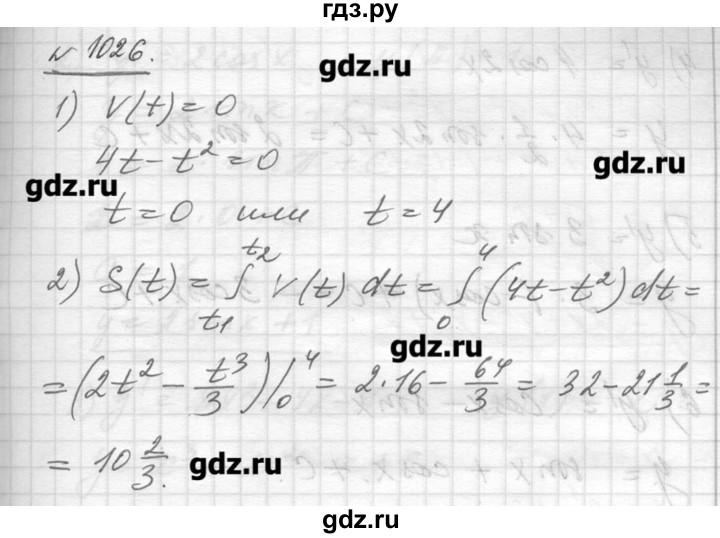 гдз.ру
№ 1026.
gdz.ru
1) V(t) = 0
4t − t² = 0
gdz.ru
gdz.ru
t = 0 или t = 4
2) S(t) = ∫_{t1}^{t2} V(t) dt = ∫_0^4 (4t − t²) dt =
gdz.ru
= (2t² − t³/3)|_0^4 = 2·16 − 64/3 = 32 − 21 1/3 =
= 10 2/3.
gdz.ru
gdz.ru